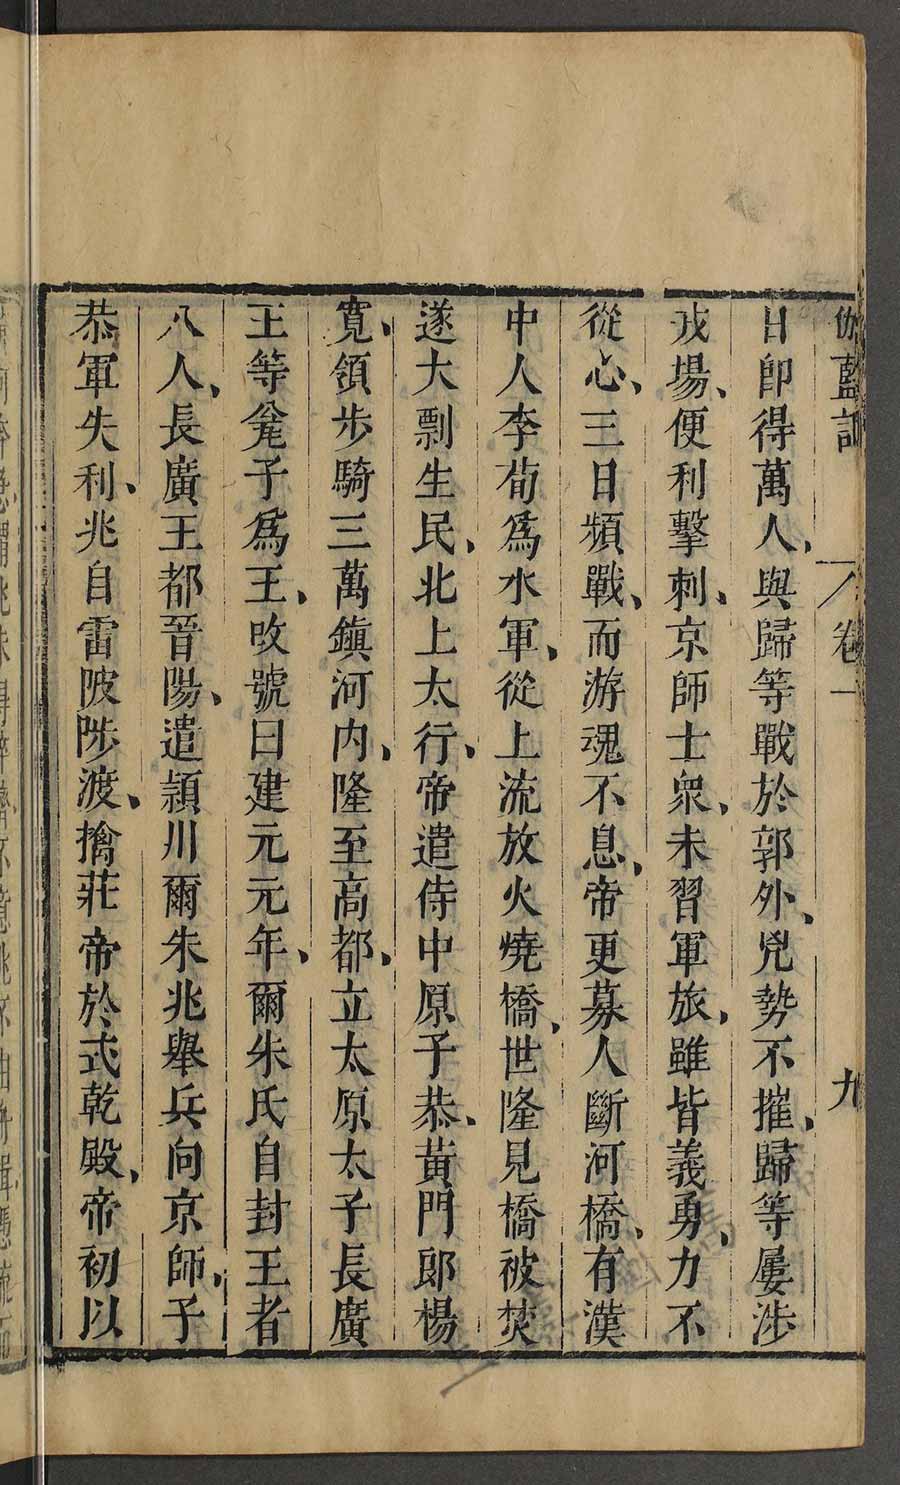 伽藍記 卷一 九
日卽得萬人、與歸等戰於郭外、兇勢不摧、歸等屢涉
戎場、便利擊刺、京師士衆、未習軍旅、雖皆義勇、力不
從心、三日頻戰、而游魂不息、帝更募人斷河橋、有漢
中人李荀爲水軍、從上流放火燒橋、世隆見橋被焚
遂大剽生民、北上太行、帝遣侍中原子恭、黃門郎楊
寬、領步騎三萬鎮河内、隆至高都、立太原太子長廣
王等爲子爲王、攺號曰建元元年、爾朱氏自封王者
八人、長廣王都晉陽、遣頴川爾朱兆舉兵向京師、子
恭軍失利、兆自雷陂陟渡、擒莊帝於式乾殿、帝初以